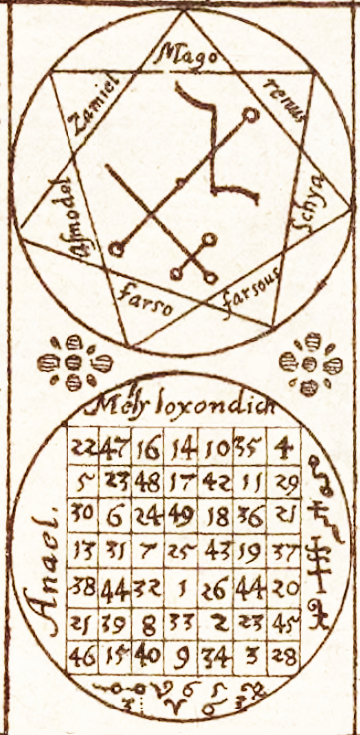 Mago
remus
Schya
farsous
farso
Asmodel
Zamiel
Mely loxondich
22 47 16 14 10 35 4
5 23 48 17 42 11 29
30 6 24 49 18 36 21
13 31 7 25 43 19 37
38 44 32 1 26 44 20
21 39 8 33 2 23 45
46 15 40 9 34 3 28
Anael.